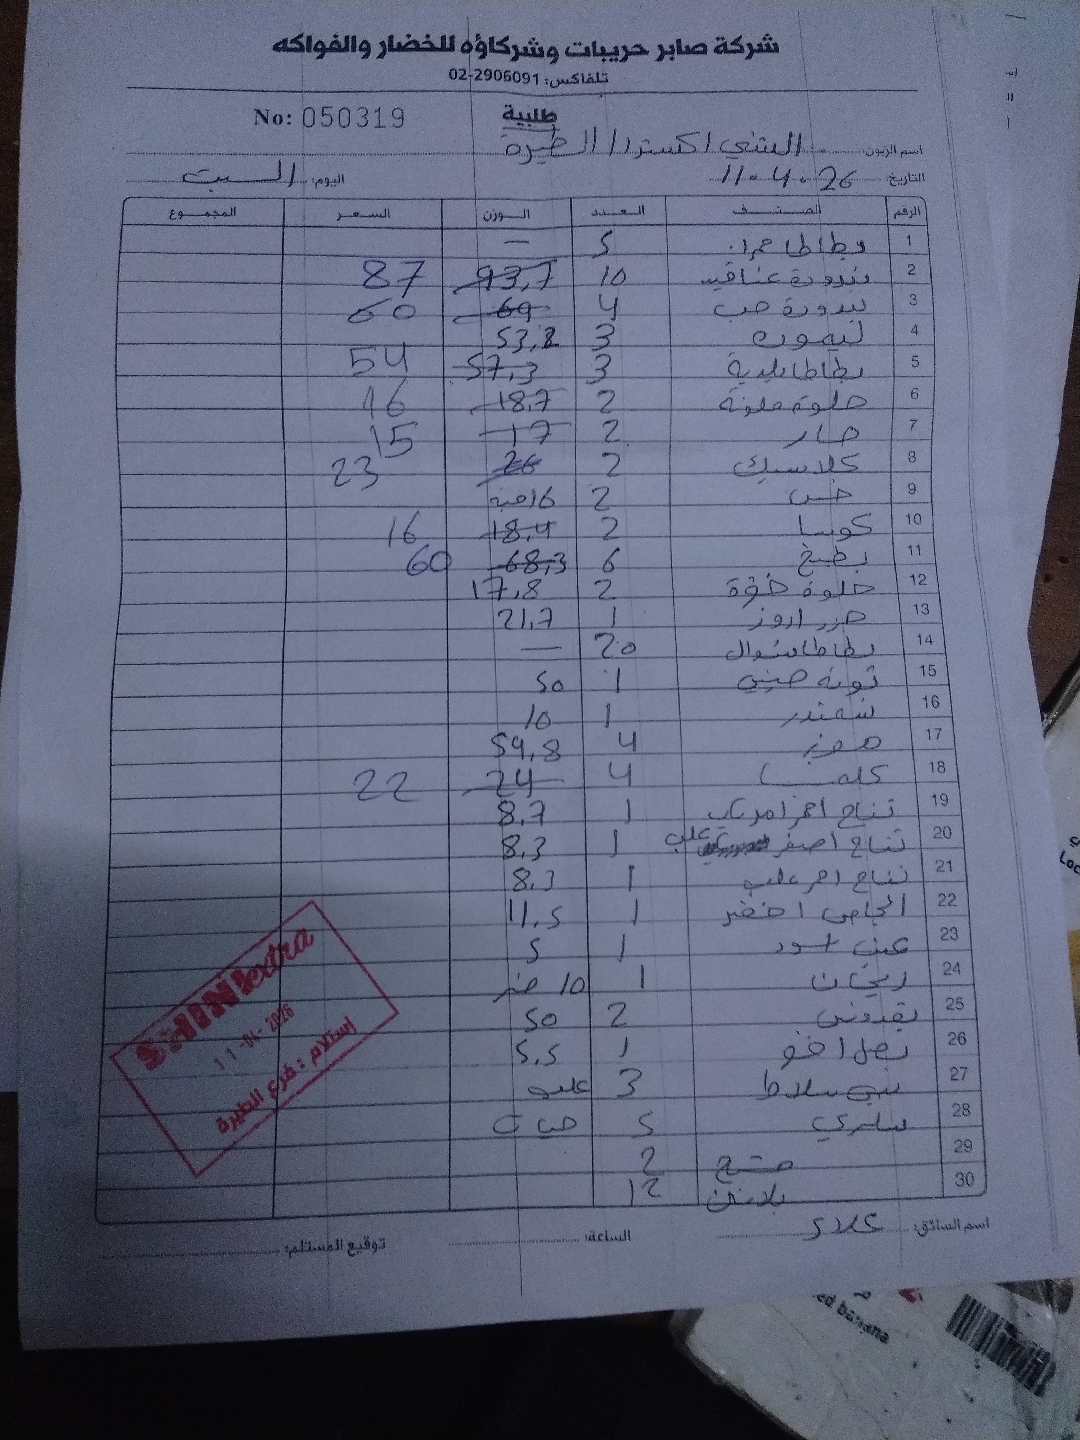 شركة صابر حريبات وشركاؤه للخضار والفواكه
تلفاكس: 02-2906091
No: 050319
طلبية
اسم الزبون: الشني اكسترا الطيرة
التاريخ: 11.4.26 اليوم: السبت
الرقم الصنف العدد الوزن السعر المجموع
1 بطاطا حمرا 5 —
2 بندورة عناقيد 10 93,7 87
3 بندورة حب 4 69 60
4 ليمون 3 53,8
5 بطاطا بلدية 3 57,3 54
6 حلوة ملونة 2 18,7 16
7 حار 2 17 15
8 كلاسيك 2 26 23
9 خس 2 16 حبة
10 كوسا 2 18,4 16
11 بطيخ 6 68,3 60
12 حلوة 2 17,8
13 جزر اروز 1 21,7
14 بطاطا شوال 20 —
15 تومة صيني 1 50
16 شمندر 1 10
17 موز 4 59,8
18 كلمنتينا 4 24 22
19 تفاح احمر امريكي 1 8,7
20 تفاح اصفر علب 1 8,3
21 تفاح احمر علب 1 8,3
22 اجاص اخضر 1 11,5
23 عنب اسود 1 5
24 ريحان 1 10
25 بقدونس 2 50
26 بصل اخضر 1 5,5
27 بيبي سلاط 3 علب
28 سلري 5 حبات
29 2
30 12
اسم السائق: علاء الساعة: توقيع المستلم:
SHINI extra
11-04-2026
إستلام : فرع الطيرة
ed banana